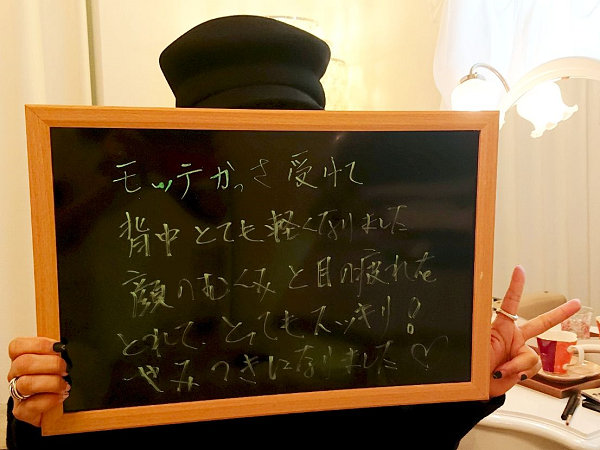 モッテかっさ 受けて
背中とても軽くなりました
顔のむくみと目の疲れも
とれて、とってもスッキリ!
やみつきになりました♡